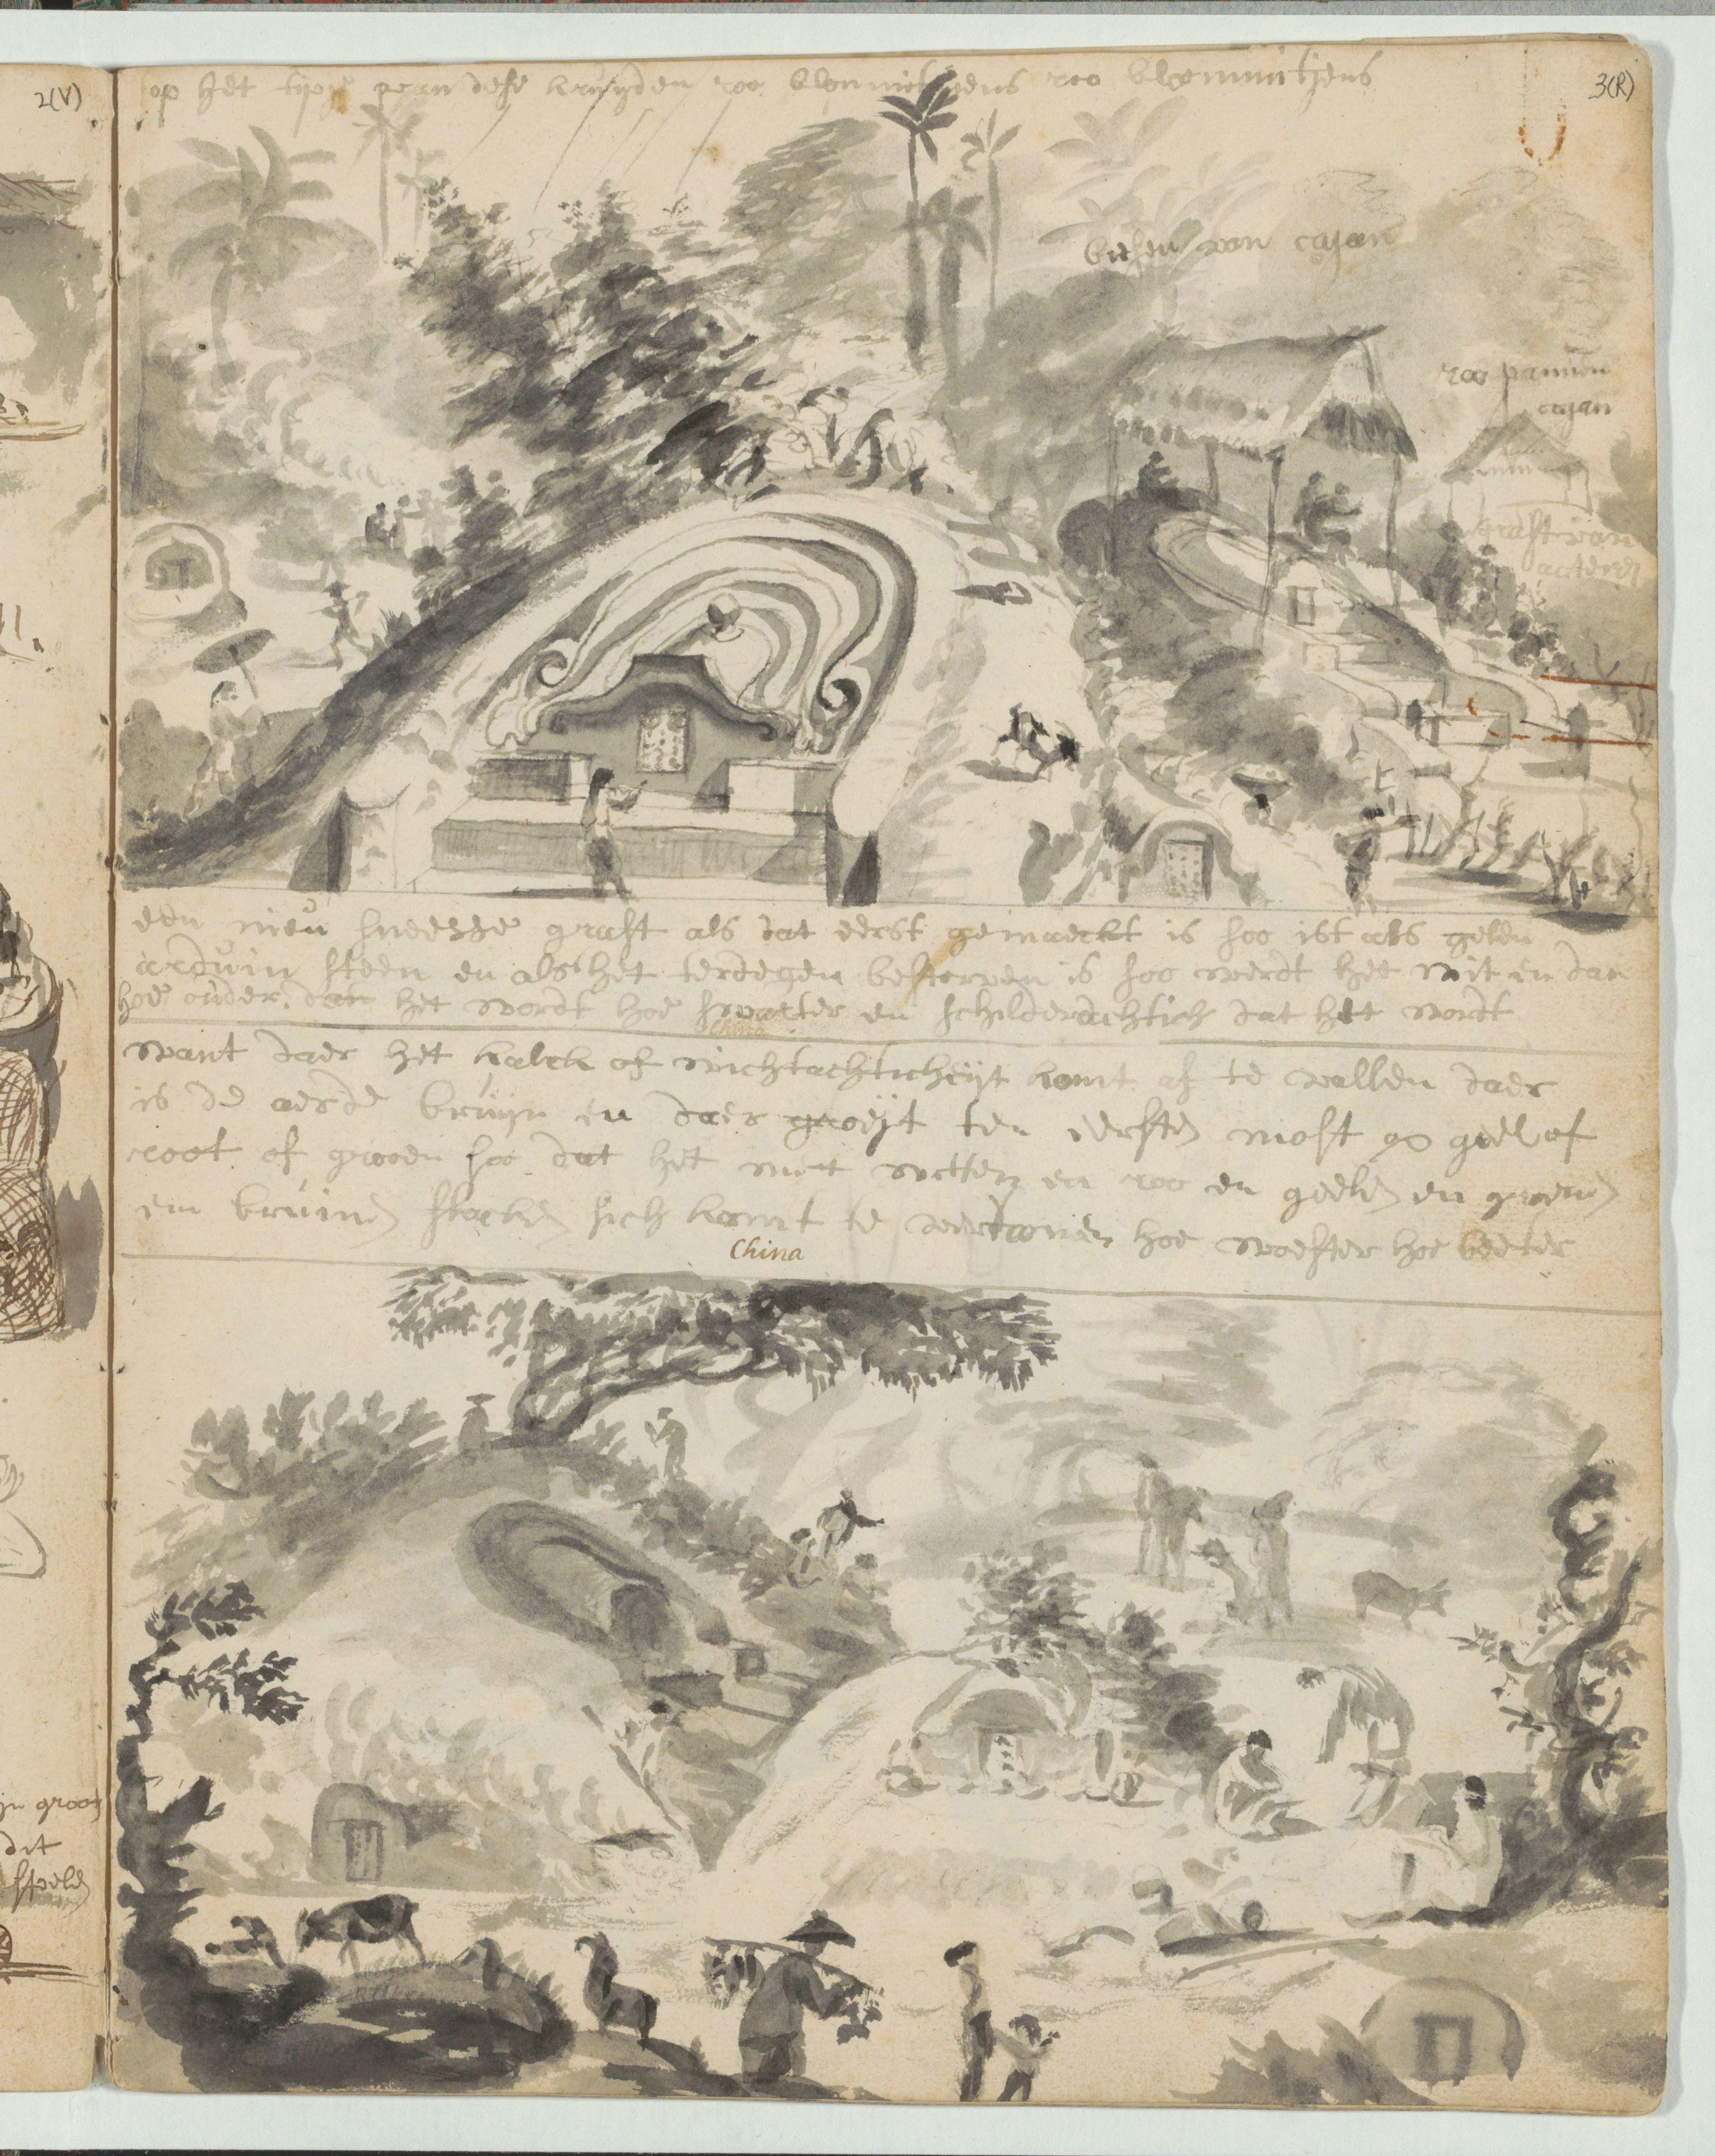 2(V)
3(R)
op het van dese kruyden roo blommetjens roo bloemmitjens
van cajan
roo pannen
cajan
graft van
een nieu sneesse graft als dat eerst gemaeckt is soo ist als gelen
arduin steen en als het terdegen bestorven is soo werdt het wit en dan
hoe ouder dat het wordt hoe swarter en schilderachtich dat het wordt
china
want daer het kalck of vichtachticheyt komt af te vallen daer
is de aerde bruyn en daer groeyt ten eersten most op geel of
root of groen soo dat het met witten en roo en geele en groene
en bruine plecken sich komt te vertonen hoe woester hoe beeter
China
groot
dit